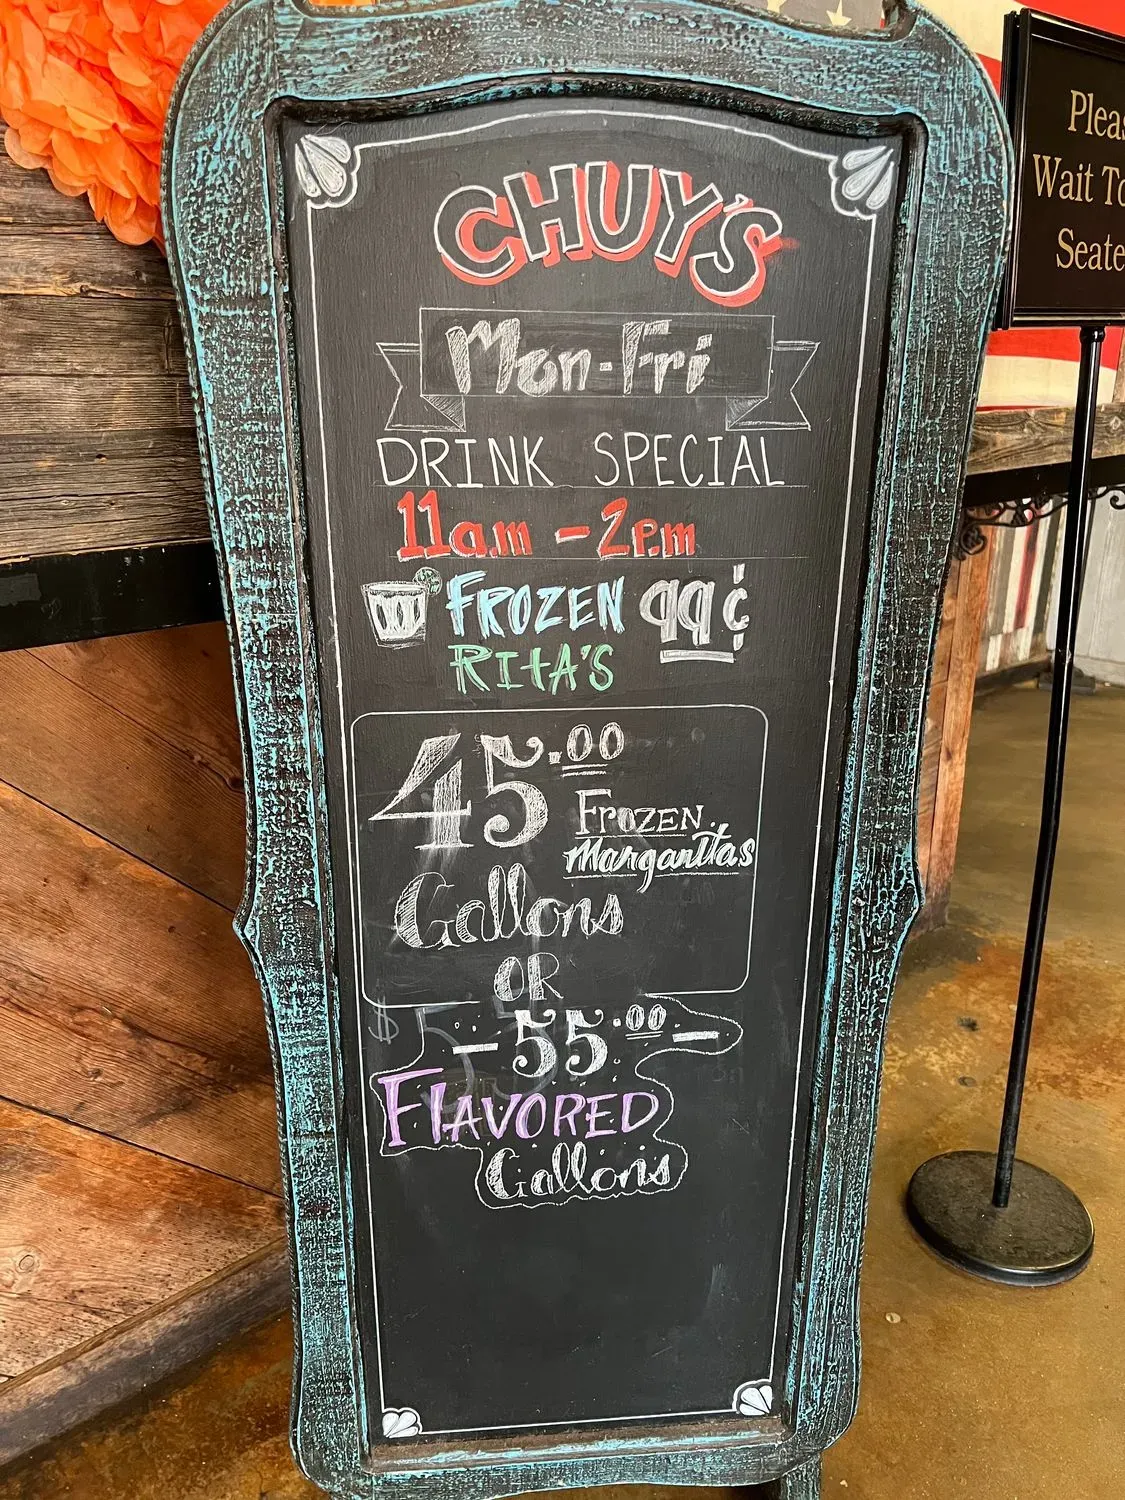 CHUY'S
Mon-Fri
DRINK SPECIAL
11a.m - 2p.m
FROZEN 99¢
RITA'S
45.00
FROZEN
Margaritas
Gallons
OR
-55.00-
FLAVORED
Gallons
Wait